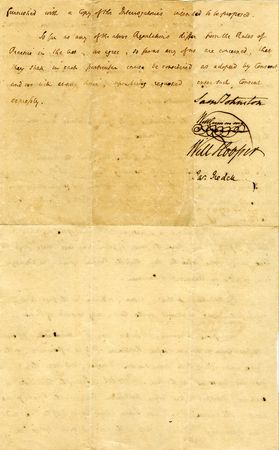 furnished with a Copy of the Interrogatories intended to be proposed.
So far as any of the above Regulations differ from the Rules of
Practice in the we agree, so far as any of us are concerned, that
they shall in each particular cause be considered as adopted by Consent
and we will at any time, upon being requested enter such Consent
Sam Johnston
Will Hooper
Jas. Iredell